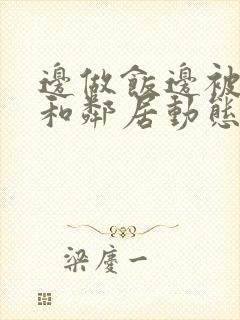 邊做飯邊被
和鄰居動態
梁慶一